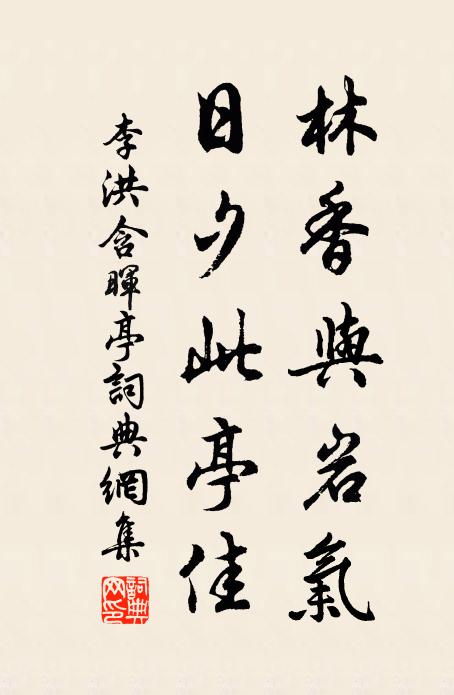 林香與岩氣
日夕此亭佳
李洪含暉亭詞典網集
詞典
网印